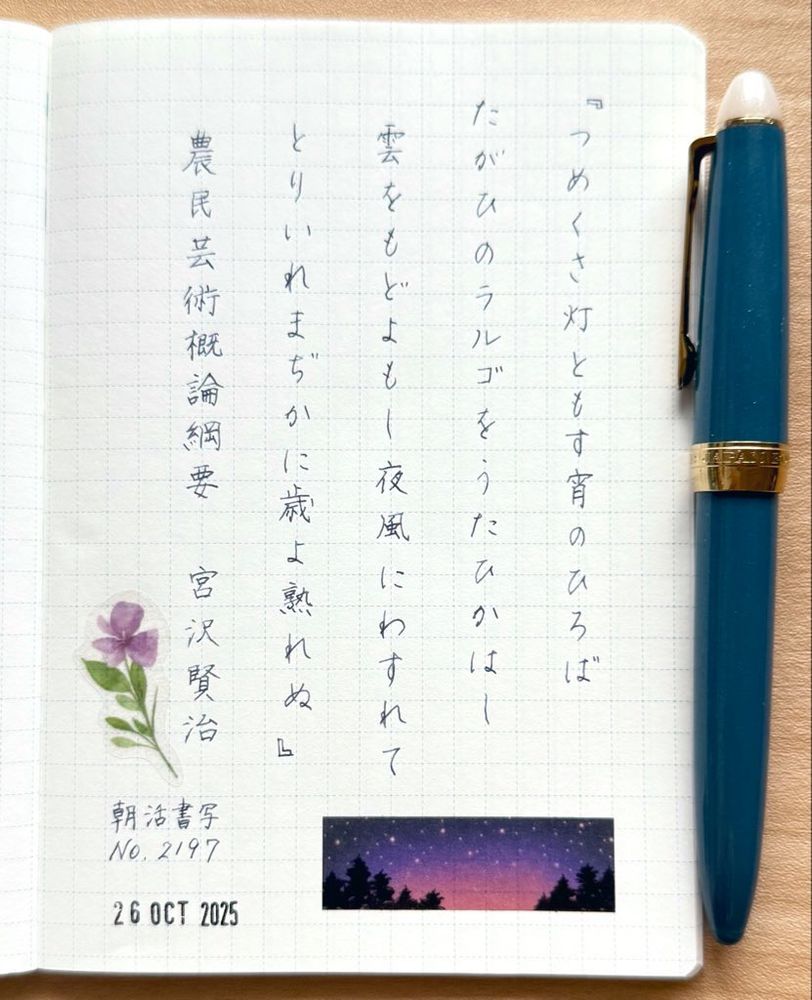 『つめくさ灯ともす宵のひろば
たがひのラルゴをうたひかはし
雲をもどよもし夜風にわすれて
とりいれまぢかに歳よ熟れぬ』
農民芸術概論綱要 宮沢賢治
朝活書写
No. 2197
26 OCT 2025